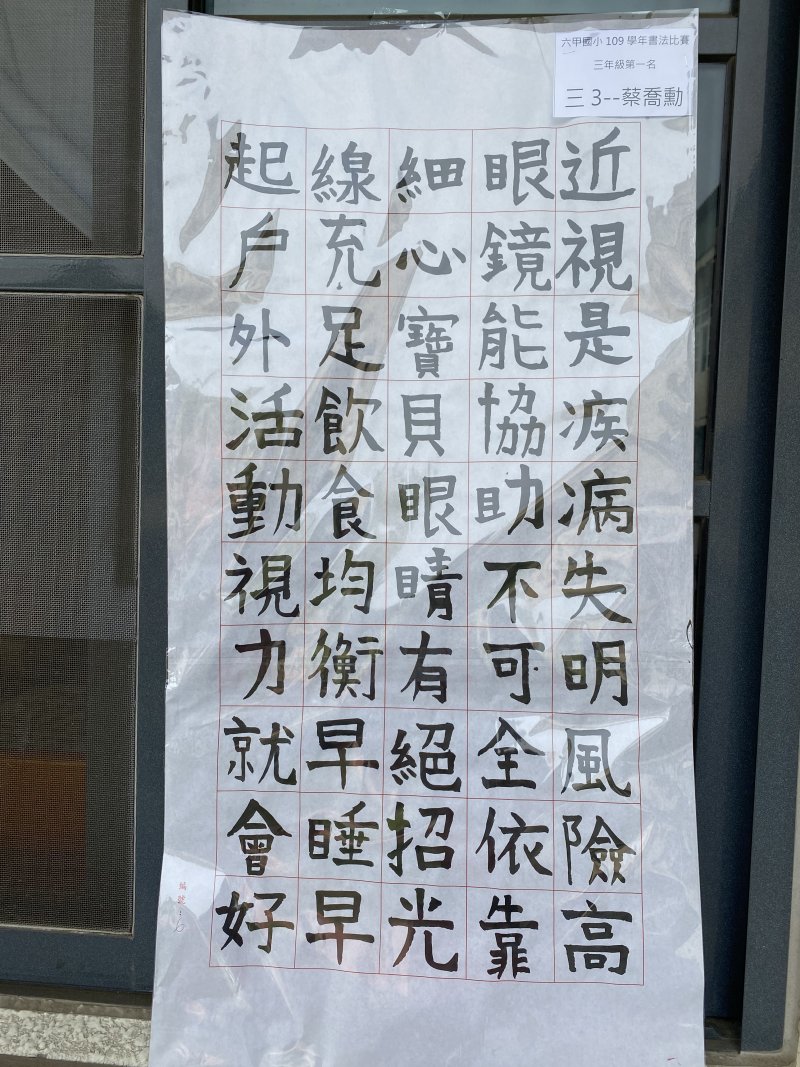 六甲國小 109 學年書法比賽
三年級第一名
三 3--蔡喬勳
近視是疾病失明風險高
眼鏡能協助不可全依靠
細心寶貝眼睛有絕招光
線充足飲食均衡早睡早
起戶外活動視力就會好
編號: